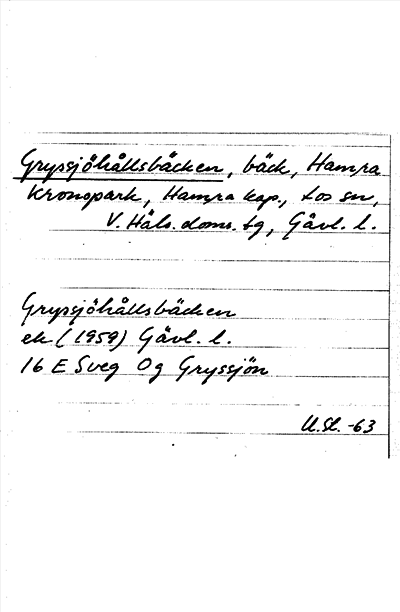 Gryssjöhållsbäcken, bäck, Hamra
Kronopark, Hamra kap., Los sn,
V. Häls. doms. tg, Gävl. l.
Gryssjöhållsbäcken
ek (1959) Gävl. l.
16 E Sveg Og Gryssjön
U.St. -63